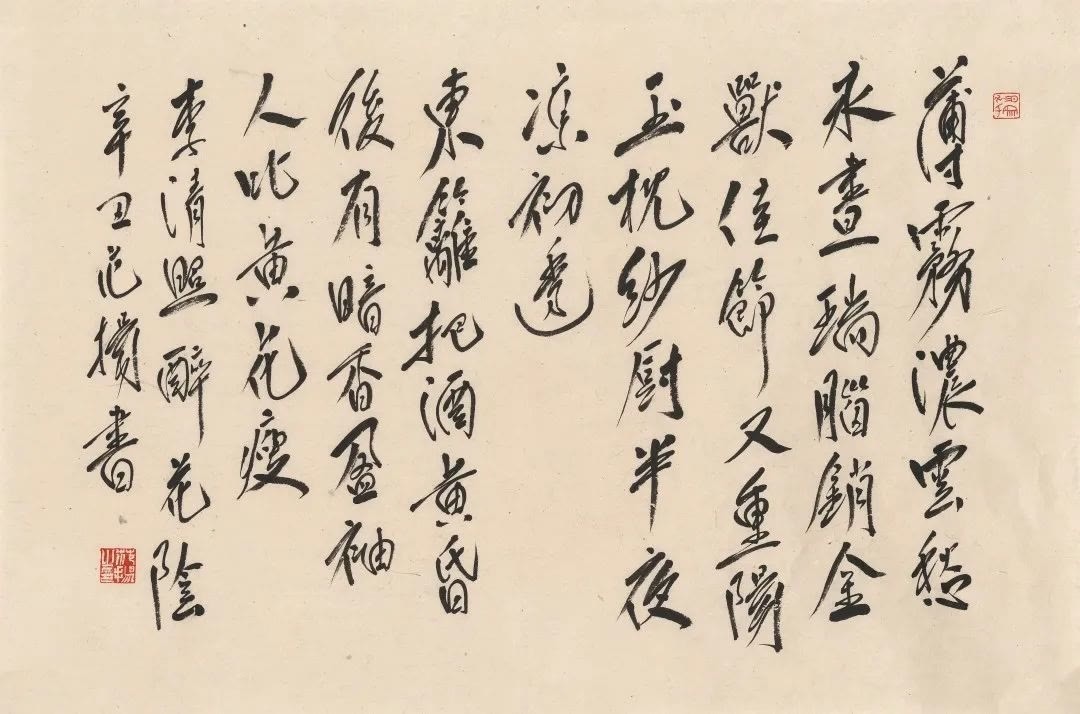 薄霧濃雲愁
永晝瑞腦銷金
獸佳節又重陽
玉枕紗厨半夜
凉初透
東籬把酒黄昏
後有暗香盈袖
人比黄花瘦
李清照醉花陰
辛丑范揚書